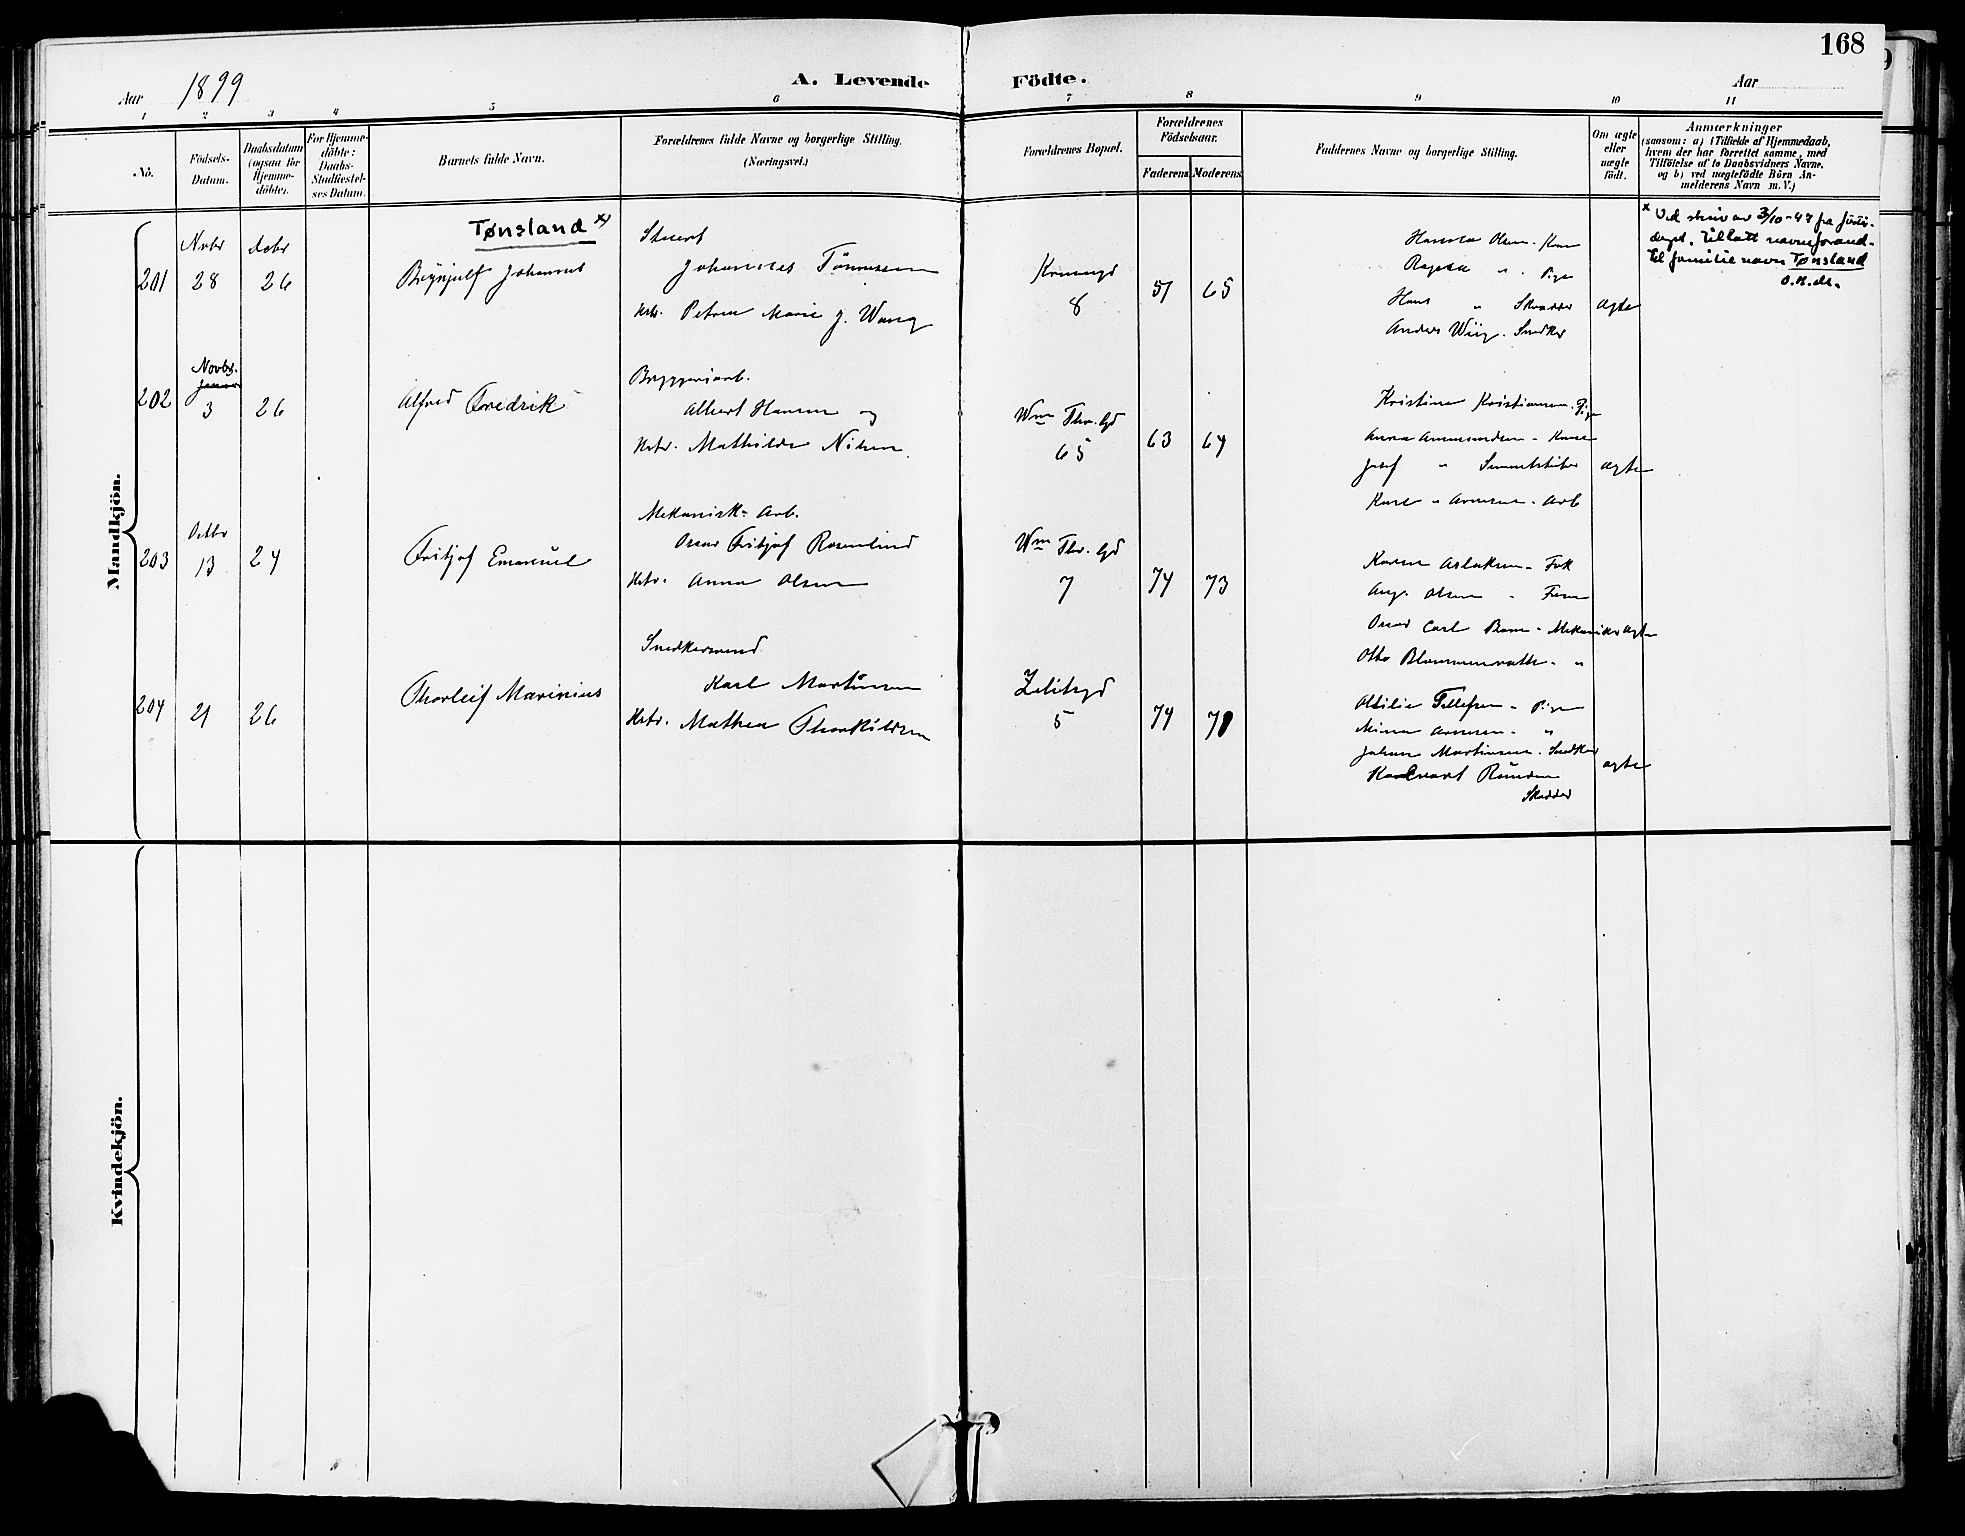 168
Aar 1899
A. Levende Födte.
Aar
1 2 3 4 5 6 7 8 9 10 11
No.
Födsels-Datum.
Daabsdatum (ogsaa for Hjemme-döbte).
For Hjemme-döbte: Daabs-Stadfæstel-ses Datum.
Barnets fulde Navn.
Forældrenes fulde Navne og borgerlige Stilling.
(Næringsvei.)
Forældrenes Bopæl.
Forældrenes Födselsaar.
Faderens
Moderens
Faddernes Navne og borgerlige Stilling.
Om ægte eller uægte födt.
Anmærkninger
(saasom: a) i Tilfælde af Hjemmedaab,
hvem der har forrettet samme, med
Tilföielse af to Daabsvidners Navne,
og b) ved uægtefödte Börn An-
melderens Navn m. V.)
Mandkjön.
201
Novbr
28
Debr
26
Tønsland x)
Brynjulf Johannes
Stuert
Johannes Tönnessen
Hstr. Petrea Marie f. Wang
8
57
65
Olsen - Kone
Ragna " - Pige
Hans " Skrædder
Anders Wiig. Snedker
ægte
x Ved skriv av 3/10-47 fra Justis-
dept. tillatt navneforand-
til familienavn Tønsland
202
Novbr.
3
26
Alfred Fredrik
Bryggeriarb.
Albert Hansen og
Hstr. Mathilde Nilsen
Wm Thr. Gd
65
63
67
Kristine Kristiansen. Pige
Anna Amundsen - Kone
Josef "
Karl - Arnesen - Arb
ægte
203
Octbr
13
24
Fritjof Emanuel
Mekanisk-Arb.
Oscar Fritjof Rosenlund
Hstr. Anna Olsen
Wm Thr. Gd
7
74
73
Karen Aslaksen - Frk
Aug. Olsen - Frue
Oscar Carl - Mekaniker
Otto Blommenrath - "
ægte
204
21
26
Thorleif Marinius
Snedkersvend
Karl Martinsen
Hstr. Mathea Thorkildsen
5
74
71
Ottilie Tellefsen - Pige
Mina Arnesen - "
Johan Martinsen - Snedker
Skrædder
ægte
Kvindekjön.